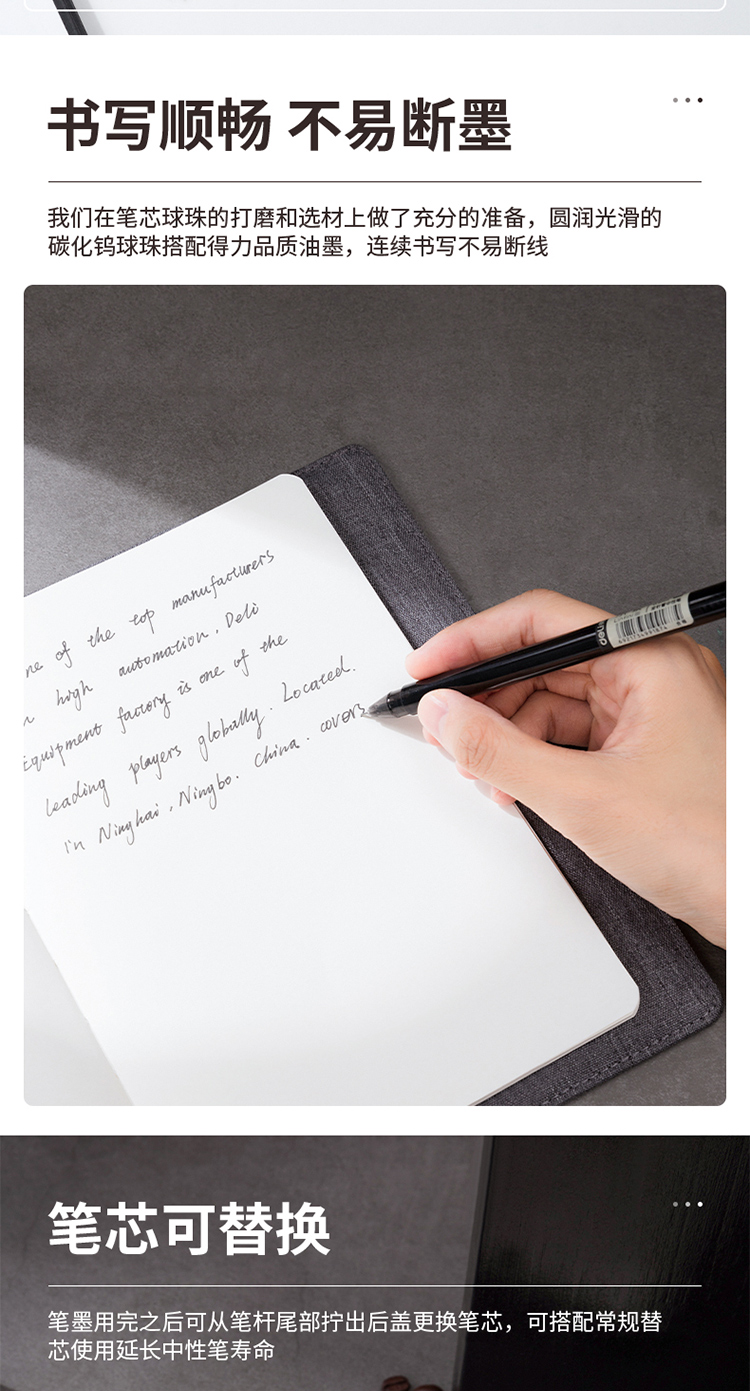 书写顺畅 不易断墨
我们在笔芯球珠的打磨和选材上做了充分的准备，圆润光滑的
碳化钨球珠搭配得力品质油墨，连续书写不易断线
ne of the top manufacturers
high automation, Deli
Equipment factory is one of the
leading players globally. Located.
in Ninghai, Ningbo. China. covers
deli
笔芯可替换
笔墨用完之后可从笔杆尾部拧出后盖更换笔芯，可搭配常规替
芯使用延长中性笔寿命